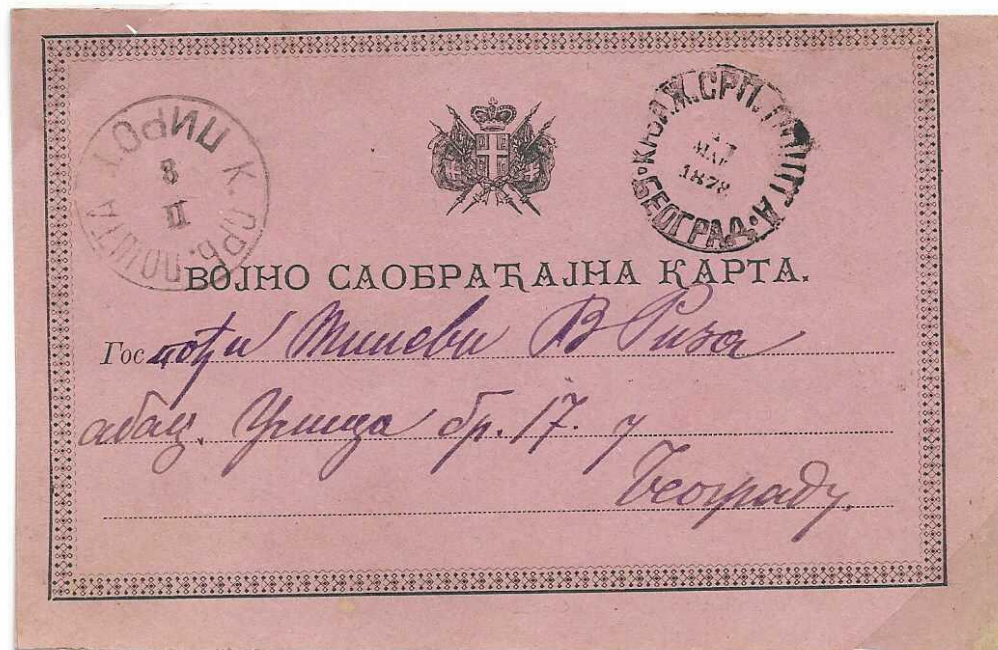 К. СРБ. ПОШТА ПИРОТ
8
II
КЊАЖ. СРП. ПОШТА. БЕОГРАД.
МАР
1878
ВОЈНО САОБРАЋАЈНА КАРТА.
Госпођи В Риза
абаџ. Улица бр. 17. у
Београду.